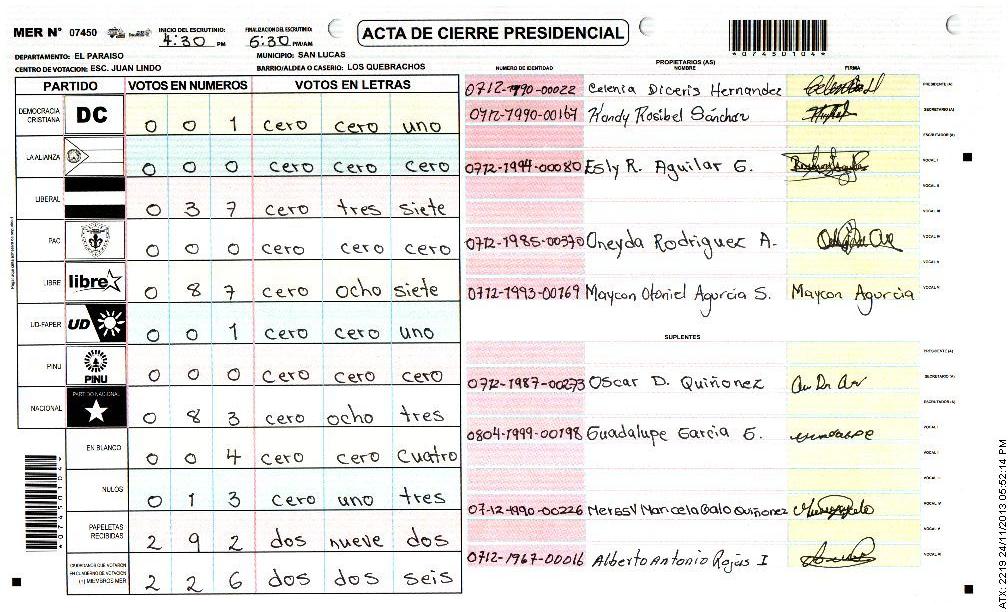 MER Nº 07450
INICIO DEL ESCRUTINIO:
4:30 PM
FINALIZACION DEL ESCRUTINIO:
6:30 PM/AM
ACTA DE CIERRE PRESIDENCIAL
*07450104*
DEPARTAMENTO: EL PARAISO
MUNICIPIO: SAN LUCAS
CENTRO DE VOTACION: ESC. JUAN LINDO
BARRIO/ALDEA O CASERIO: LOS QUEBRACHOS
PARTIDO VOTOS EN NUMEROS VOTOS EN LETRAS
DEMOCRACIA CRISTIANA DC 0 0 1 cero cero uno
LA ALIANZA 0 0 0 cero cero cero
LIBERAL 0 3 7 cero tres siete
PAC 0 0 0 cero cero cero
LIBRE libre 0 8 7 cero ocho siete
UD-FAPER UD 0 0 1 cero cero uno
PINU PINU 0 0 0 cero cero cero
NACIONAL PARTIDO NACIONAL 0 8 3 cero ocho tres
EN BLANCO 0 0 4 cero cero cuatro
NULOS 0 1 3 cero uno tres
PAPELETAS RECIBIDAS 2 9 2 dos nueve dos
CIUDADANOS QUE VOTARON EN CUADERNO DE VOTACION (+) MIEMBROS MER 2 2 6 dos dos seis
*07450104*
PROPIETARIOS (AS)
NUMERO DE IDENTIDAD NOMBRE FIRMA
0712-1990-00022 Celenia Diceris Hernandez PRESIDENTE (A)
0712-1990-00167 Kandy Rosibel Sánchez SECRETARIO (A)
ESCRUTADOR (A)
0712-1994-00080 Esly R. Aguilar G. VOCAL I
VOCAL II
VOCAL III
0712-1985-00370 Oneyda Rodriguez A. VOCAL IV
VOCAL V
0712-1993-00169 Maycon Otoniel Agurcia S. Maycon Agurcia
SUPLENTES
PRESIDENTE (A)
0712-1987-00273 Oscar D. Quiñonez SECRETARIO (A)
ESCRUTADOR (A)
0804-1999-00198 Guadalupe Garcia G. VOCAL I
0712-1990-00226 Marcela Galo Quiñonez VOCAL IV
VOCAL V
0712-1967-00016 Alberto Antonio Rojas I
ATX: 2219 24/11/2013 05:52:14 PM